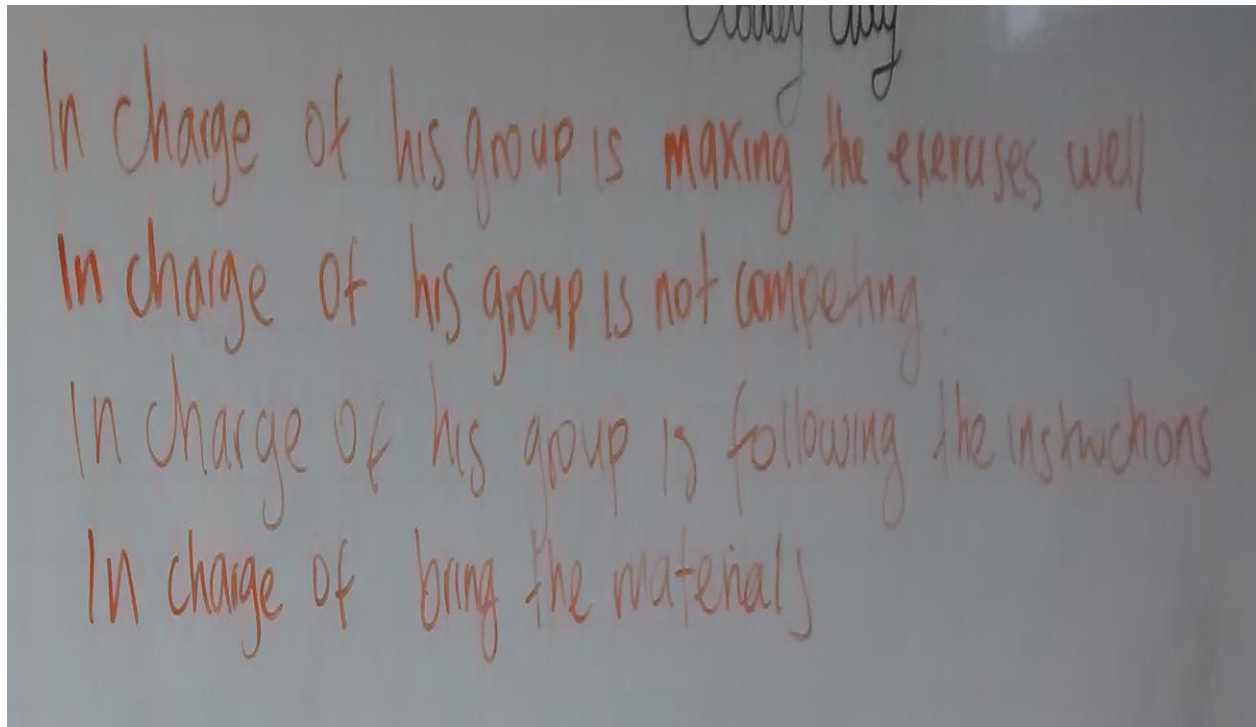 In charge of his group is making the exercises well
In charge of his group is not competing.
In charge of his group is following the instructions
In charge of bring the materials